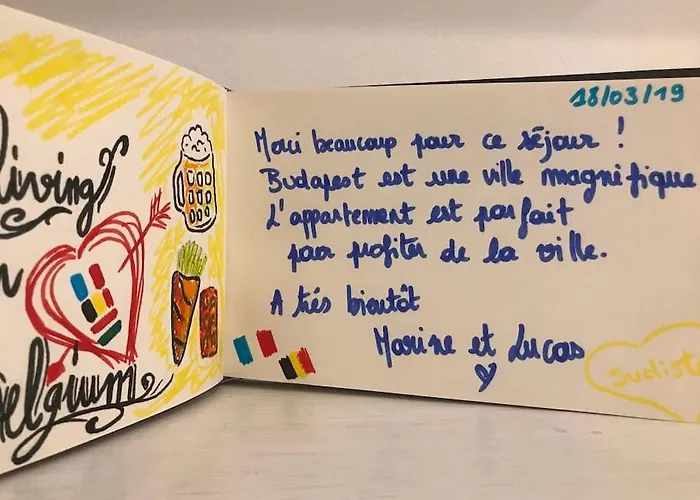 living
Belgium
18/03/19
Merci beaucoup pour ce séjour !
Budapest est une ville magnifique
L'appartement est parfait
pour profiter de la ville.
A très bientôt
Marine et Lucas
Sudiste